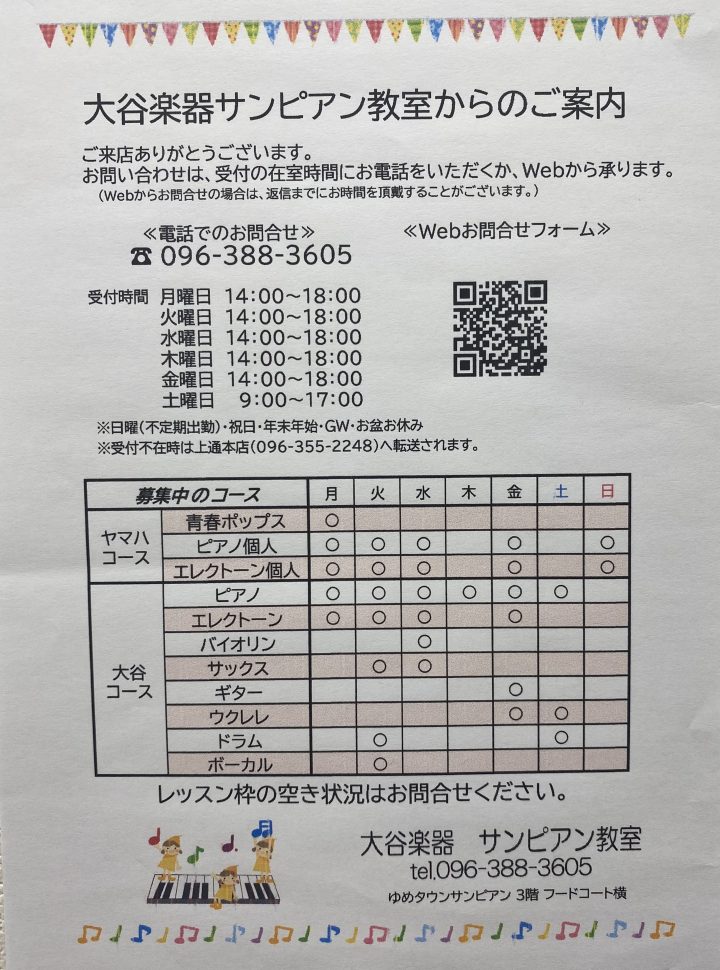 大谷楽器サンピアン教室からのご案内
ご来店ありがとうございます。
お問い合わせは、受付の在室時間にお電話をいただくか、Webから承ります。
（Webからお問合せの場合は、返信までにお時間を頂戴することがございます。）
≪電話でのお問合せ≫
☎ 096-388-3605
≪Webお問合せフォーム≫
受付時間 月曜日 14:00～18:00
火曜日 14:00～18:00
水曜日 14:00～18:00
木曜日 14:00～18:00
金曜日 14:00～18:00
土曜日 9:00～17:00
※日曜(不定期出勤)・祝日・年末年始・GW・お盆お休み
※受付不在時は上通本店(096-355-2248)へ転送されます。
募集中のコース 月 火 水 木 金 土 日
ヤマハコース
青春ポップス ○
ピアノ個人 ○ ○ ○ ○ ○
エレクトーン個人 ○ ○ ○ ○ ○
大谷コース
ピアノ ○ ○ ○ ○ ○ ○
エレクトーン ○ ○ ○ ○
バイオリン ○
サックス ○ ○
ギター ○
ウクレレ ○ ○
ドラム ○ ○
ボーカル ○
レッスン枠の空き状況はお問合せください。
大谷楽器 サンピアン教室
tel.096-388-3605
ゆめタウンサンピアン 3階 フードコート横